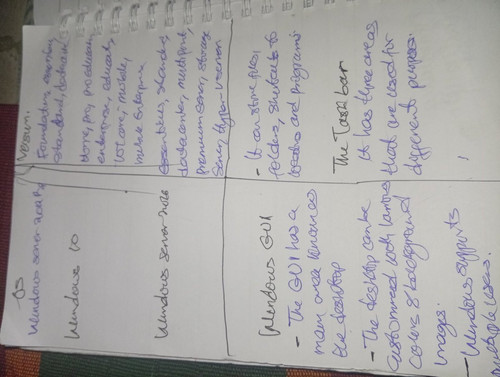 OS
Windows server 2012 R2
Windows 10
Windows server 2016
Version
Foundation, essentials,
standard, datacenter
Home, pro, pro education,
enterprise, education,
lot core, mobile,
mobile Enterprise
essentials, standard,
datacenter, multipoint
premium server, storage
server, Hyper-V server
Windows GUI
- The GUI has a
main area known as
the desktop
- The desktop can be
customised with various
colors & background
images.
- Windows supports
multiple users.
- It can store files,
folders, shortcuts to
and programs
The Taskbar
It has three areas
that are used for
different purposes.